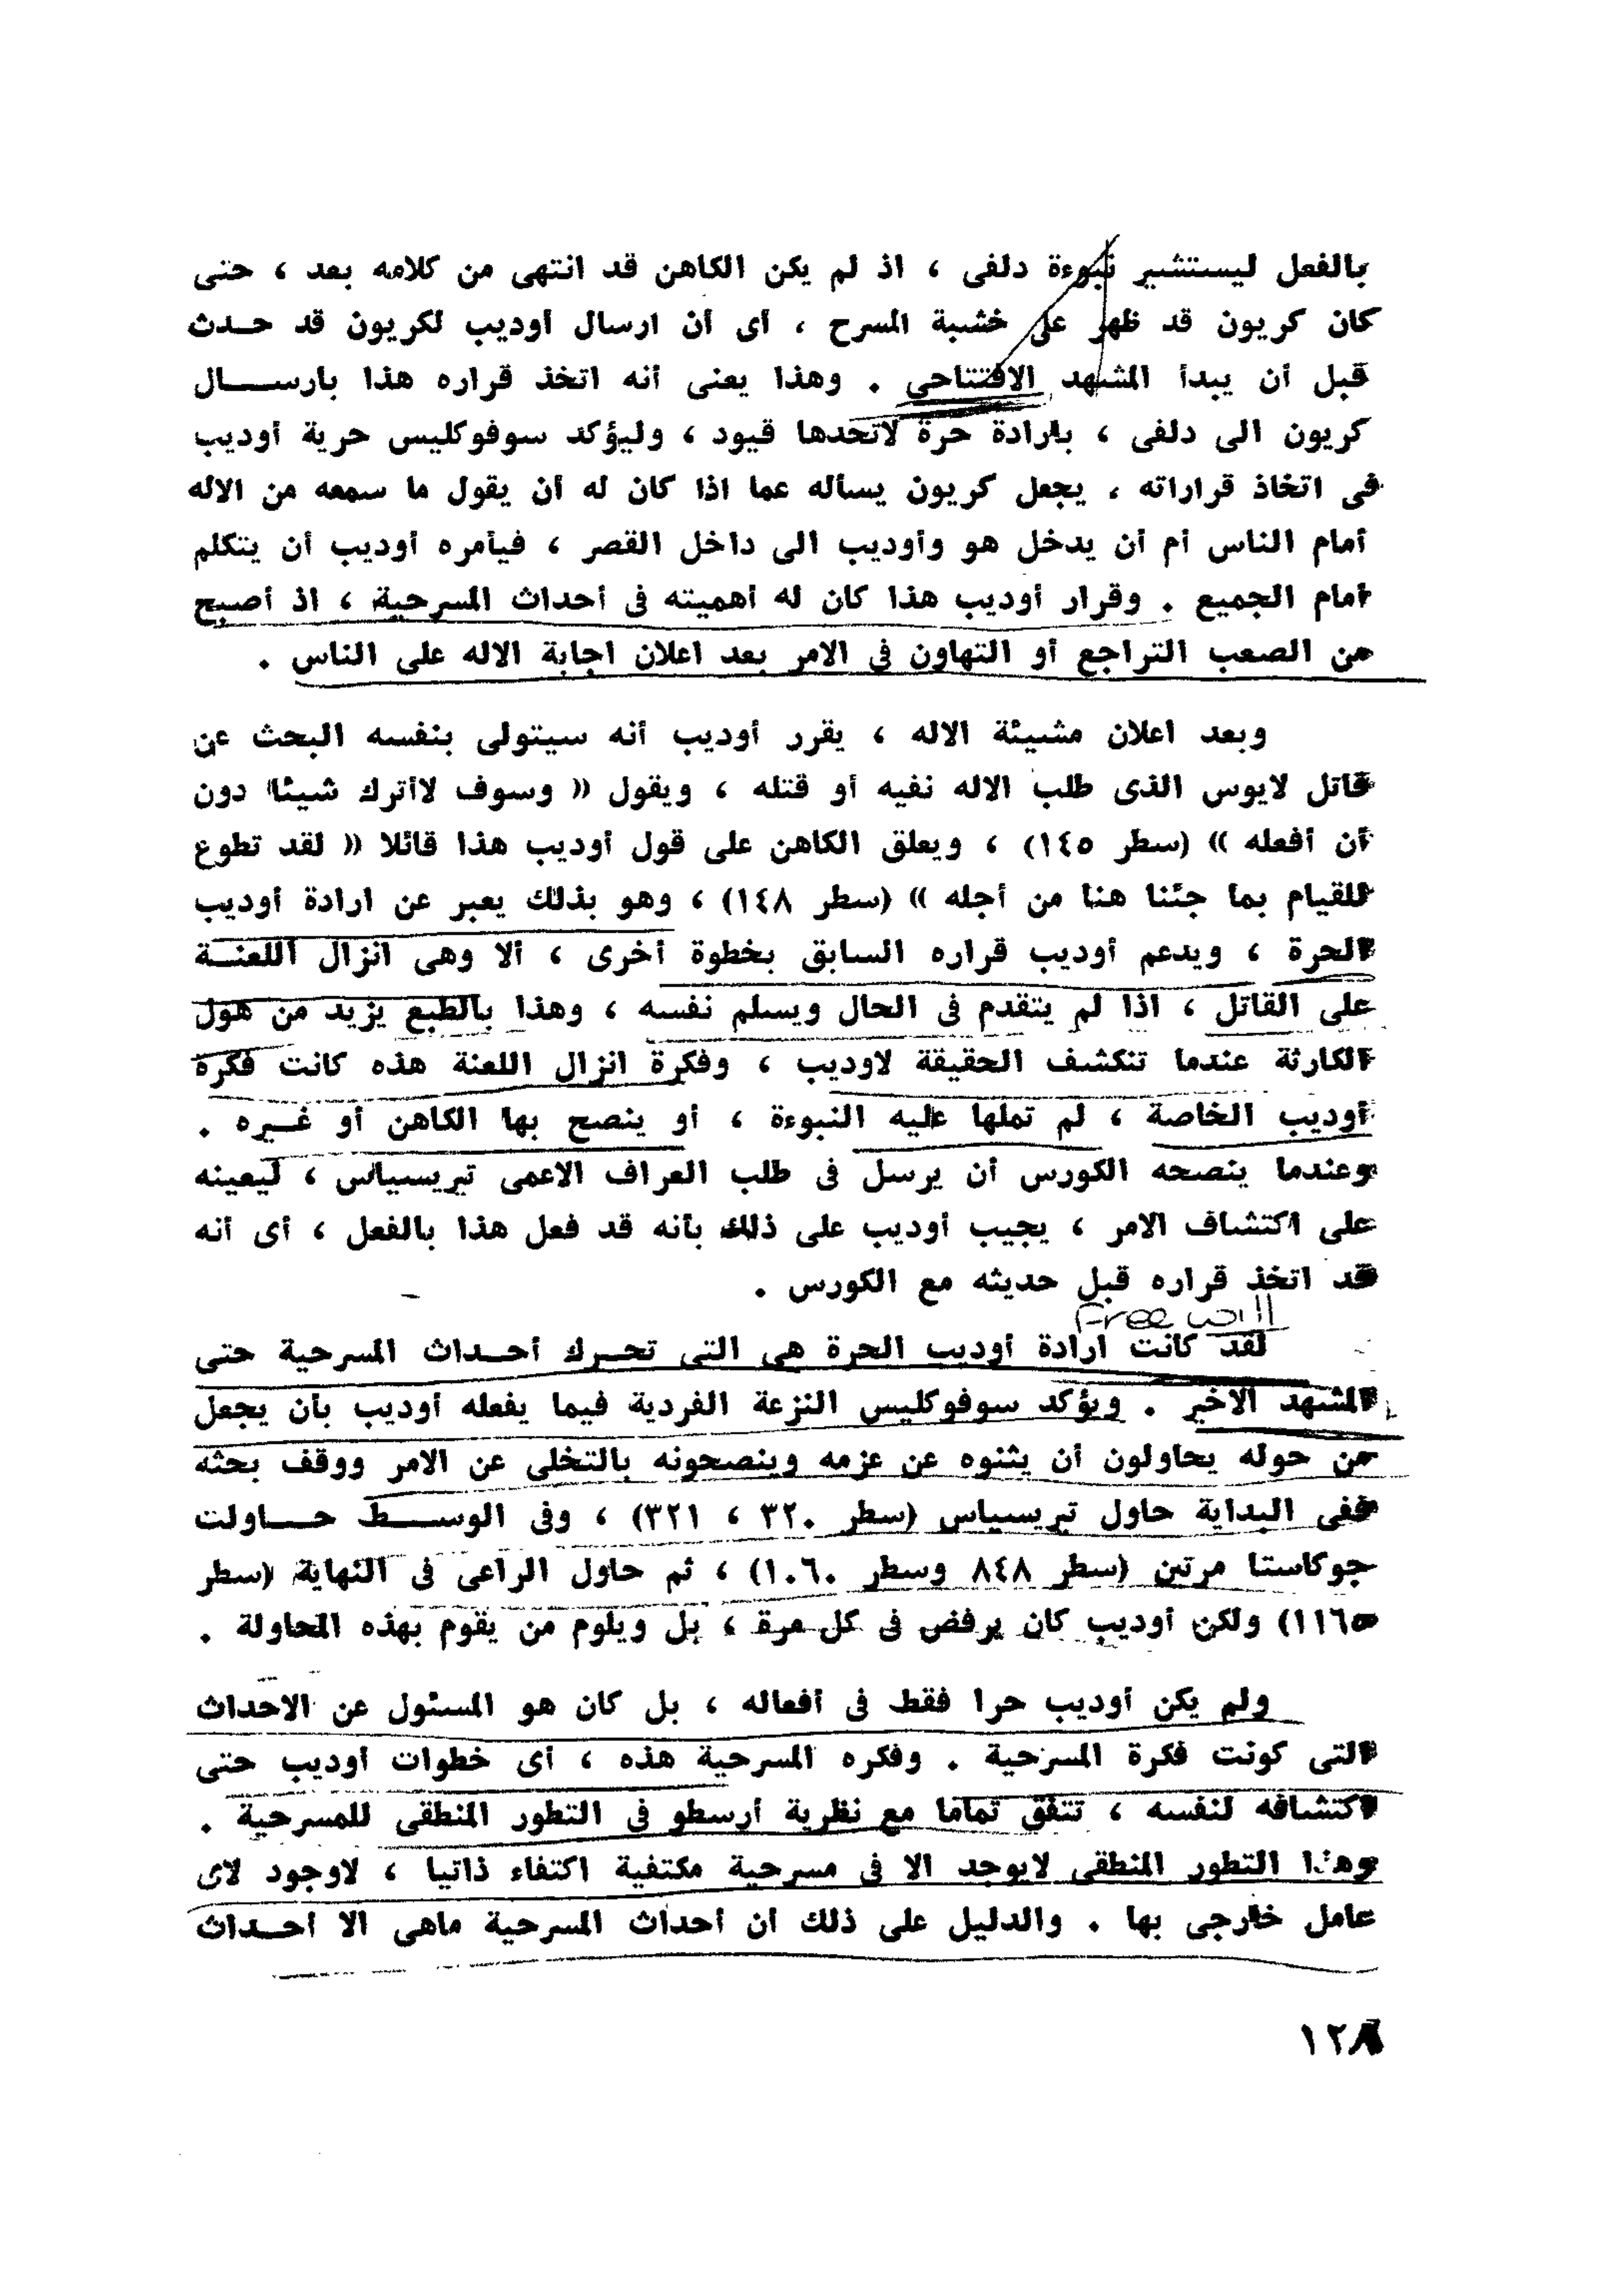 بالفعل ليستشير نبوءة دلفى ، اذ لم يكن الكاهن قد انتهى من كلامه بعد ، حتى
كان كريون قد ظهر على خشبة المسرح ، أى أن ارسال أوديب لكريون قد حـدث
قبل أن يبدأ المشهد الافتتاحى . وهذا يعنى أنه اتخذ قراره هذا بارســـال
كريون الى دلفى ، بارادة حرة لاتحدها قيود ، وليؤكد سوفوكليس حرية أوديب
فى اتخاذ قراراته ، يجعل كريون يسأله عما اذا كان له أن يقول ما سمعه من الاله
أمام الناس أم أن يدخل هو وأوديب الى داخل القصر ، فيأمره أوديب أن يتكلم
أمام الجميع . وقرار أوديب هذا كان له أهميته فى أحداث المسرحية ، اذ أصبح
من الصعب التراجع أو التهاون فى الامر بعد اعلان اجابة الاله على الناس .
وبعد اعلان مشيئة الاله ، يقرر أوديب أنه سيتولى بنفسه البحث عن
قاتل لايوس الذى طلب الاله نفيه أو قتله ، ويقول « وسوف لاأترك شيئا دون
أن أفعله » (سطر ١٤٥) ، ويعلق الكاهن على قول أوديب هذا قائلا « لقد تطوع
للقيام بما جئنا هنا من أجله » (سطر ١٤٨) ، وهو بذلك يعبر عن ارادة أوديب
الحرة ، ويدعم أوديب قراره السابق بخطوة أخرى ، ألا وهى انزال اللعنـــة
على القاتل ، اذا لم يتقدم فى الحال ويسلم نفسه ، وهذا بالطبع يزيد من هول
الكارثة عندما تنكشف الحقيقة لاوديب ، وفكرة انزال اللعنة هذه كانت فكرة
أوديب الخاصة ، لم تملها عليه النبوءة ، أو ينصح بها الكاهن أو غـــيره .
وعندما ينصحه الكورس أن يرسل فى طلب العراف الاعمى تيريسياس ، ليعينه
على اكتشاف الامر ، يجيب أوديب على ذلك بأنه قد فعل هذا بالفعل ، أى أنه
قد اتخذ قراره قبل حديثه مع الكورس .
Free will
لقد كانت ارادة أوديب الحرة هى التى تحـرك أحـداث المسرحية حتى
المشهد الاخير . ويؤكد سوفوكليس النزعة الفردية فيما يفعله أوديب بأن يجعل
من حوله يحاولون أن يثنوه عن عزمه وينصحونه بالتخلى عن الامر ووقف بحثه
ففى البداية حاول تيريسياس (سطر ٣٢٠ ، ٣٢١) ، وفى الوســـط حـــاولت
جوكاستا مرتين (سطر ٨٤٨ وسطر ١٠٦٠) ، ثم حاول الراعى فى النهاية (سطر
١١٦٥) ولكن أوديب كان يرفض فى كل مرة ، بل ويلوم من يقوم بهذه المحاولة .
ولم يكن أوديب حرا فقط فى أفعاله ، بل كان هو المسئول عن الاحداث
التى كونت فكرة المسرحية . وفكره المسرحية هذه ، أى خطوات أوديب حتى
اكتشافه لنفسه ، تتفق تماما مع نظرية أرسطو فى التطور المنطقى للمسرحية .
وهذا التطور المنطقى لايوجد الا فى مسرحية مكتفية اكتفاء ذاتيا ، لاوجود لاى
عامل خارجى بها . والدليل على ذلك أن أحداث المسرحية ماهى الا أحـــداث
١٢٨